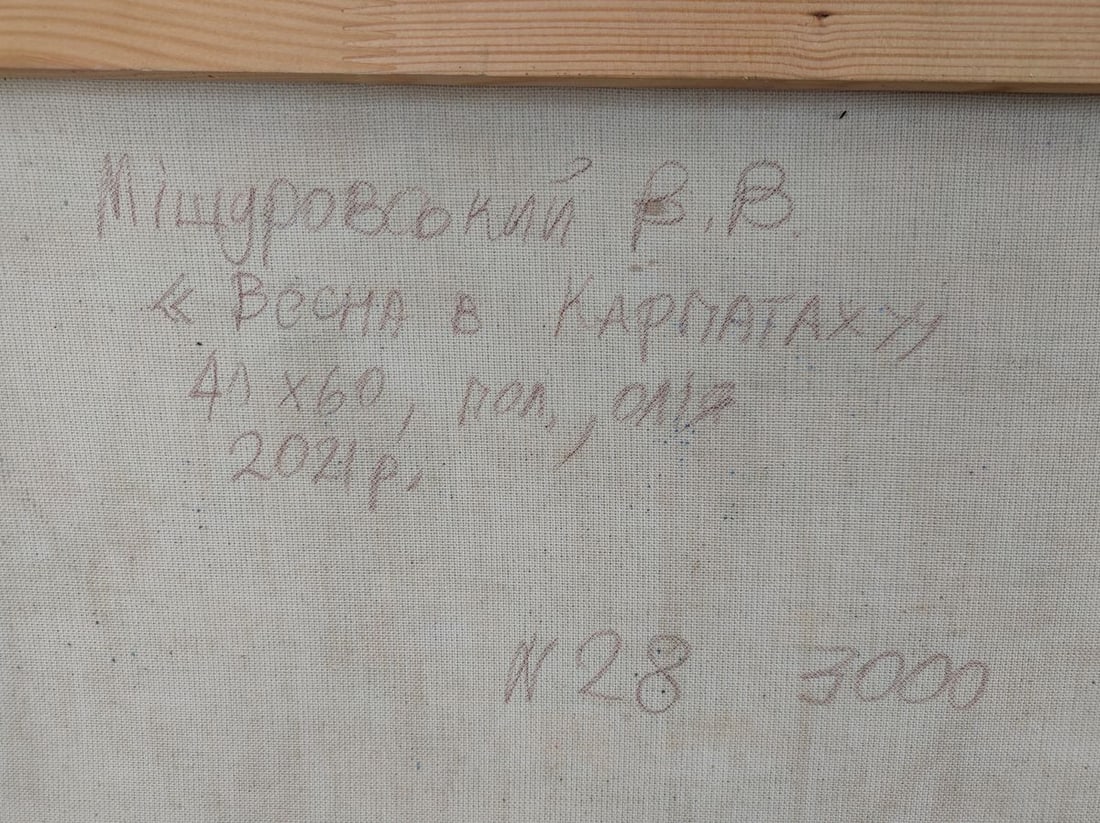 Міщуровський В. В.
« Весна в Карпатах »
х60, пол., олія
2021р.
N 28 3000